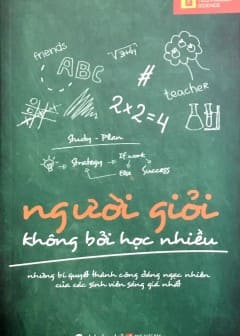 SCIENCE
friends
ABC
√3+4y
#
teacher
2×2=4
Study - Plan
Strategy
If work
Else
Success
người giỏi
không bởi học nhiều
những bí quyết thành công đáng ngạc nhiên
của các sinh viên sáng giá nhất